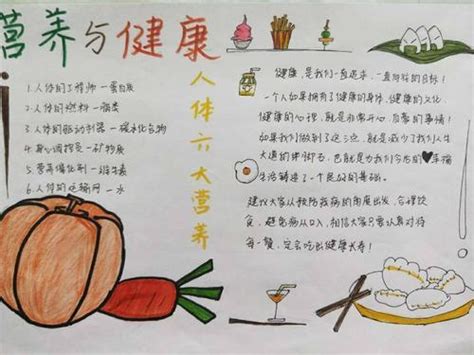 营养与健康
人体六大营养
1.人体的工程师—蛋白质
2.人体的燃料—脂类
3.人体的驱动利器—碳水化合物
4.身心调控员—矿物质
5.营养催化剂—维生素
6.人体的运输网—水
健康,是我们一直追求,一直向往的目标!
一个人如果拥有了健康的身体,健康的文化,
健康的心理,就是非常开心,启蒙的事情!
如果我们做到了这三点,就是减少了我们人生
大道的绊脚石,也就是为我们今后的 幸福
生活铸造了一个良好的基础。
建议大家从预防疾病的角度出发,合理饮
食,避免病从口入,相信大家只要认真对待
每一餐,定会吃出健康长寿!